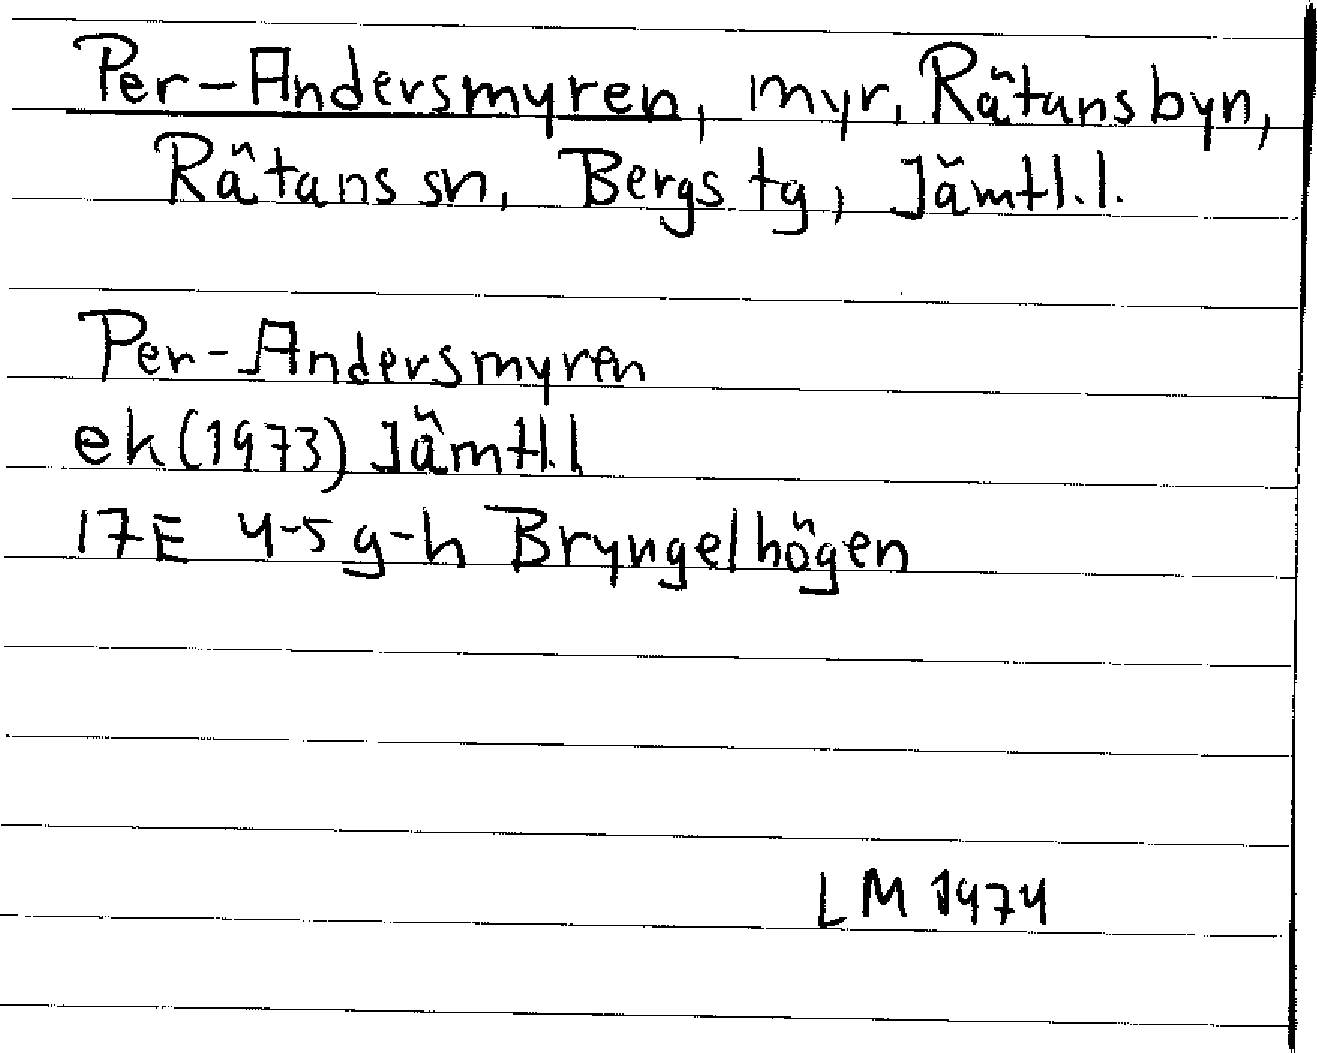 Per-Andersmyren, myr, Rätansbyn,
Rätans sn, Bergs tg, Jämtl.l.
Per-Andersmyren
ek (1973) Jämtl.l
17E 4-5 g-h Bryngelhögen
LM 1974